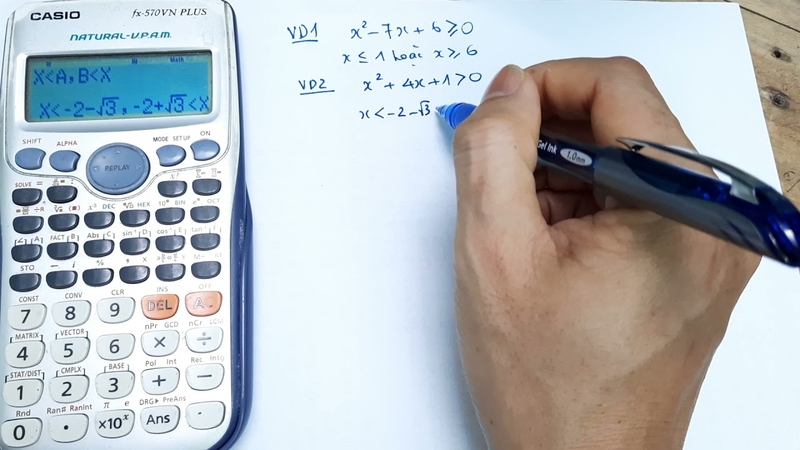 CASIO fx-570VN PLUS
NATURAL-V.P.A.M.
Math
X<A, B<X
X<-2-√3, -2+√3<X
SHIFT ALPHA MODE SETUP ON
REPLAY
SOLVE =
x³ DEC √ HEX 10ˣ BIN eˣ OCT
FACT B Abs C sin⁻¹ D cos⁻¹ E tan⁻¹ F
STO
CONST CONV CLR INS OFF
7 8 9 DEL A
MATRIX VECTOR nPr GCD nCr LCM
4 5 6 × ÷
STAT/DIST CMPLX BASE Pol Int Rec Intg
1 2 3 + −
Rnd Ran# RanInt π e DRG▶ PreAns
0 • ×10ˣ Ans
VD1 x² - 7x + 6 ≥ 0
x ≤ 1 hoặc x ≥ 6
VD2 x² + 4x + 1 > 0
x < -2 - √3
Gel Ink 1.0mm